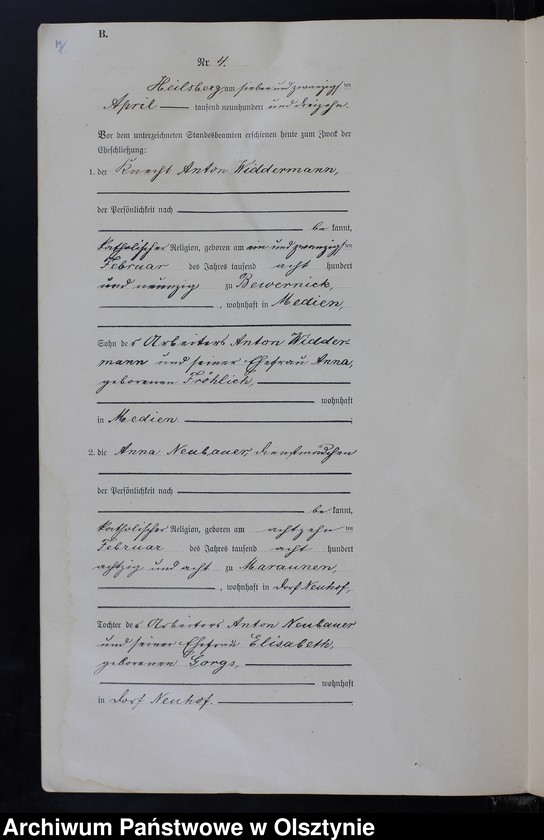 B.
Nr. 4.
Heilsberg am sieben und zwanzigsten
April tausend neunhundert und dreizehn.
Vor dem unterzeichneten Standesbeamten erschienen heute zum Zweck der
Eheschließung:
1. der Knecht Anton Widdermann,
der Persönlichkeit nach
be kannt,
katholischer Religion, geboren am ein und zwanzigsten
Februar des Jahres tausend acht hundert
und neunzig zu Bewernick,
, wohnhaft in Medien,
Sohn des Arbeiters Anton Widder-
mann und seiner Ehefrau Anna,
geborenen Fröhlich,
wohnhaft
in Medien ;
2. die Anna Neubauer, Dienstmädchen
der Persönlichkeit nach
be kannt,
katholischer Religion, geboren am achtzehn ten
Februar des Jahres tausend acht hundert
achtzig und acht zu Maraunen,
, wohnhaft in Dorf Neuhof,
Tochter des Arbeiters Anton Neubauer
und seiner Ehefrau Elisabeth,
geborenen Gorgs,
wohnhaft
in Dorf Neuhof.
Archiwum Państwowe w Olsztynie